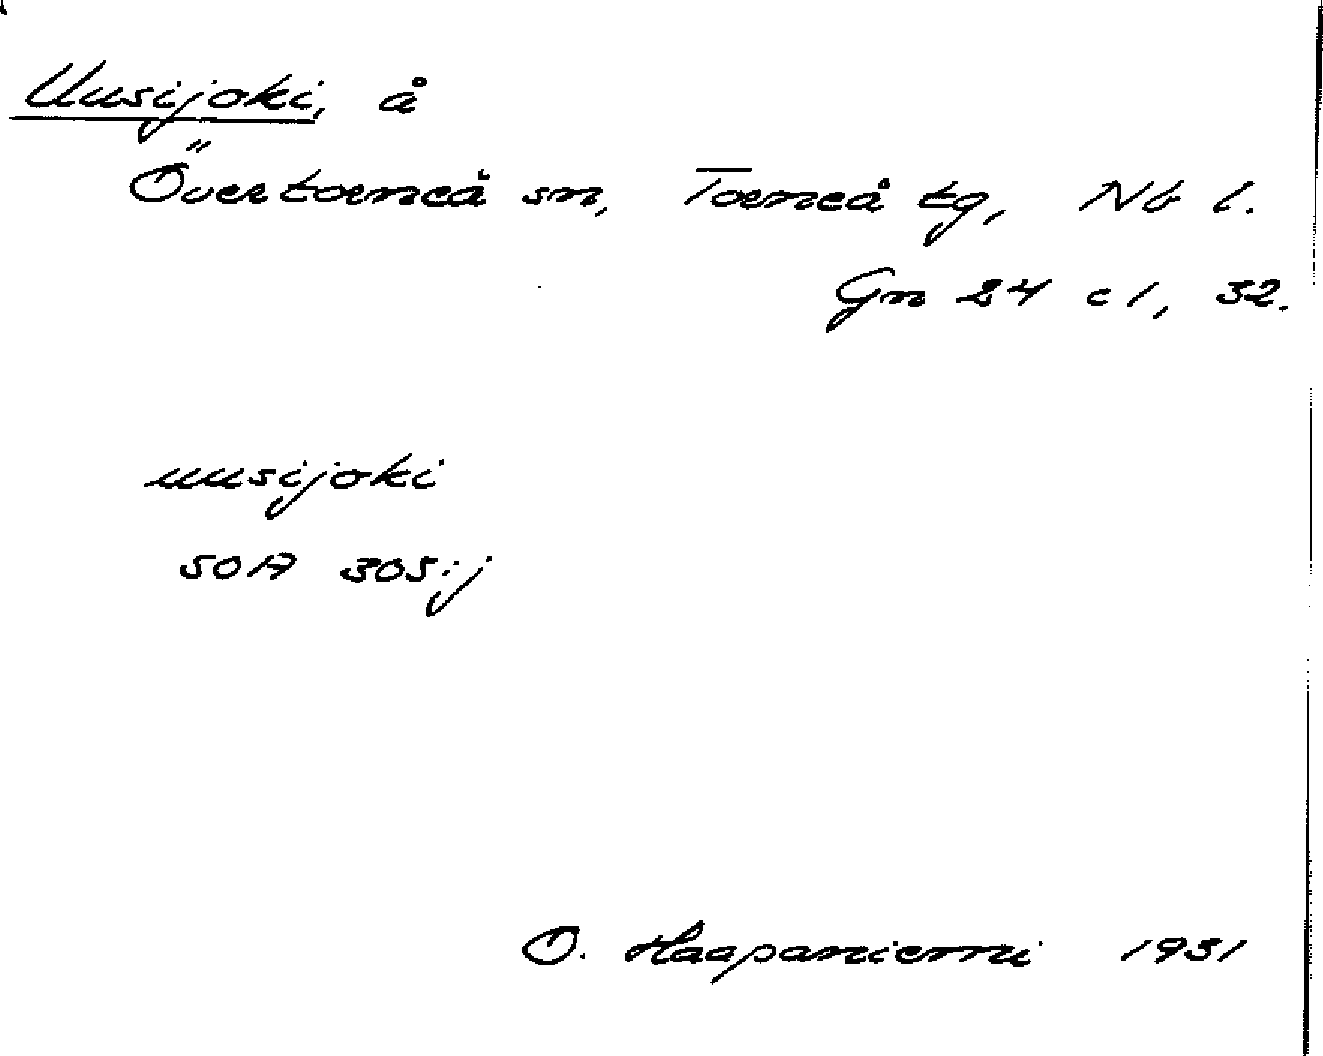 Uusijoki, å
Övertorneå sn, Torneå tg, Nb l.
Gn 24 c1, 32.
uusijoki
SOA 305:j
O. Haapaniemi 1931